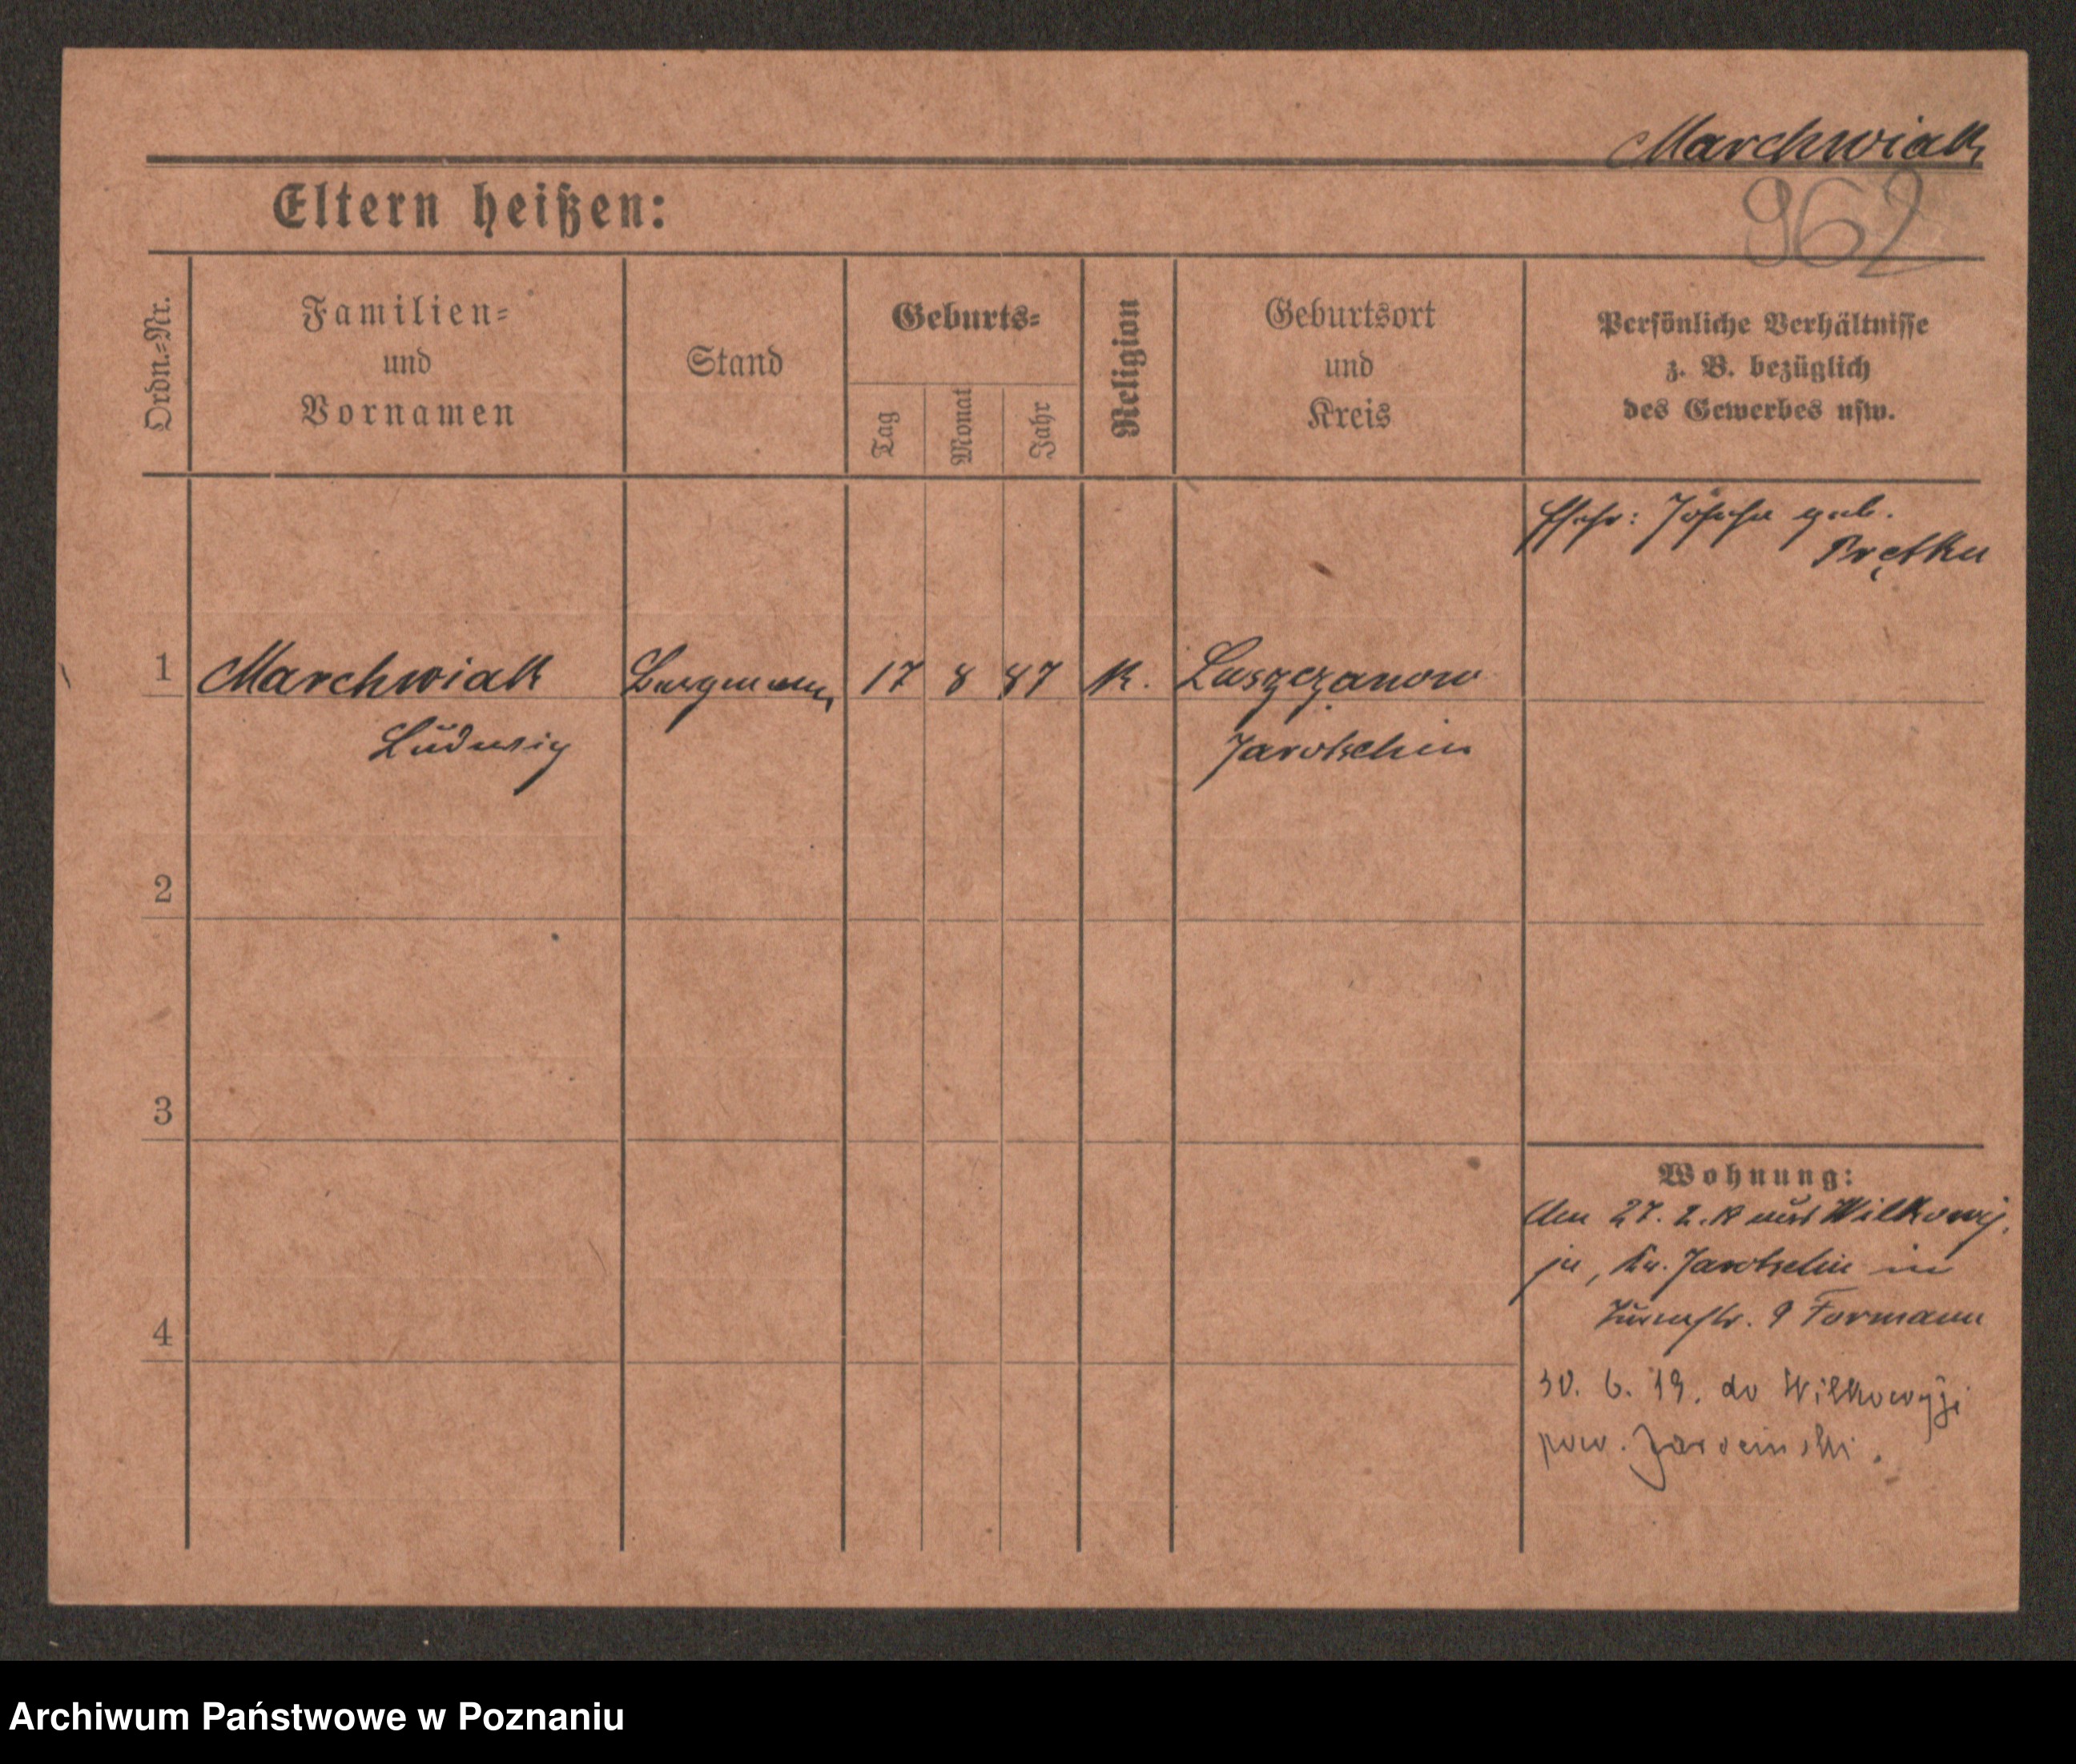 Marchwiak
962
Eltern heißen:
Ordn.=Nr.
Familien=
und
Vornamen
Stand
Geburts=
Tag
Monat
Jahr
Religion
Geburtsort
und
Kreis
Persönliche Verhältnisse
z. B. bezüglich
des Gewerbes usw.
geb.
1
Marchwiak
Bergmann
17
8
87
K.
Laszczanow
Ludwig
Jarotschin
2
3
4
Wohnung:
Am 27. 2. aus Wilkowy-
ja, Kr. Jarotschin in
9 Formann
30. 6. 19. do Wilkowyji
pow. Jarocinski.
Archiwum Państwowe w Poznaniu